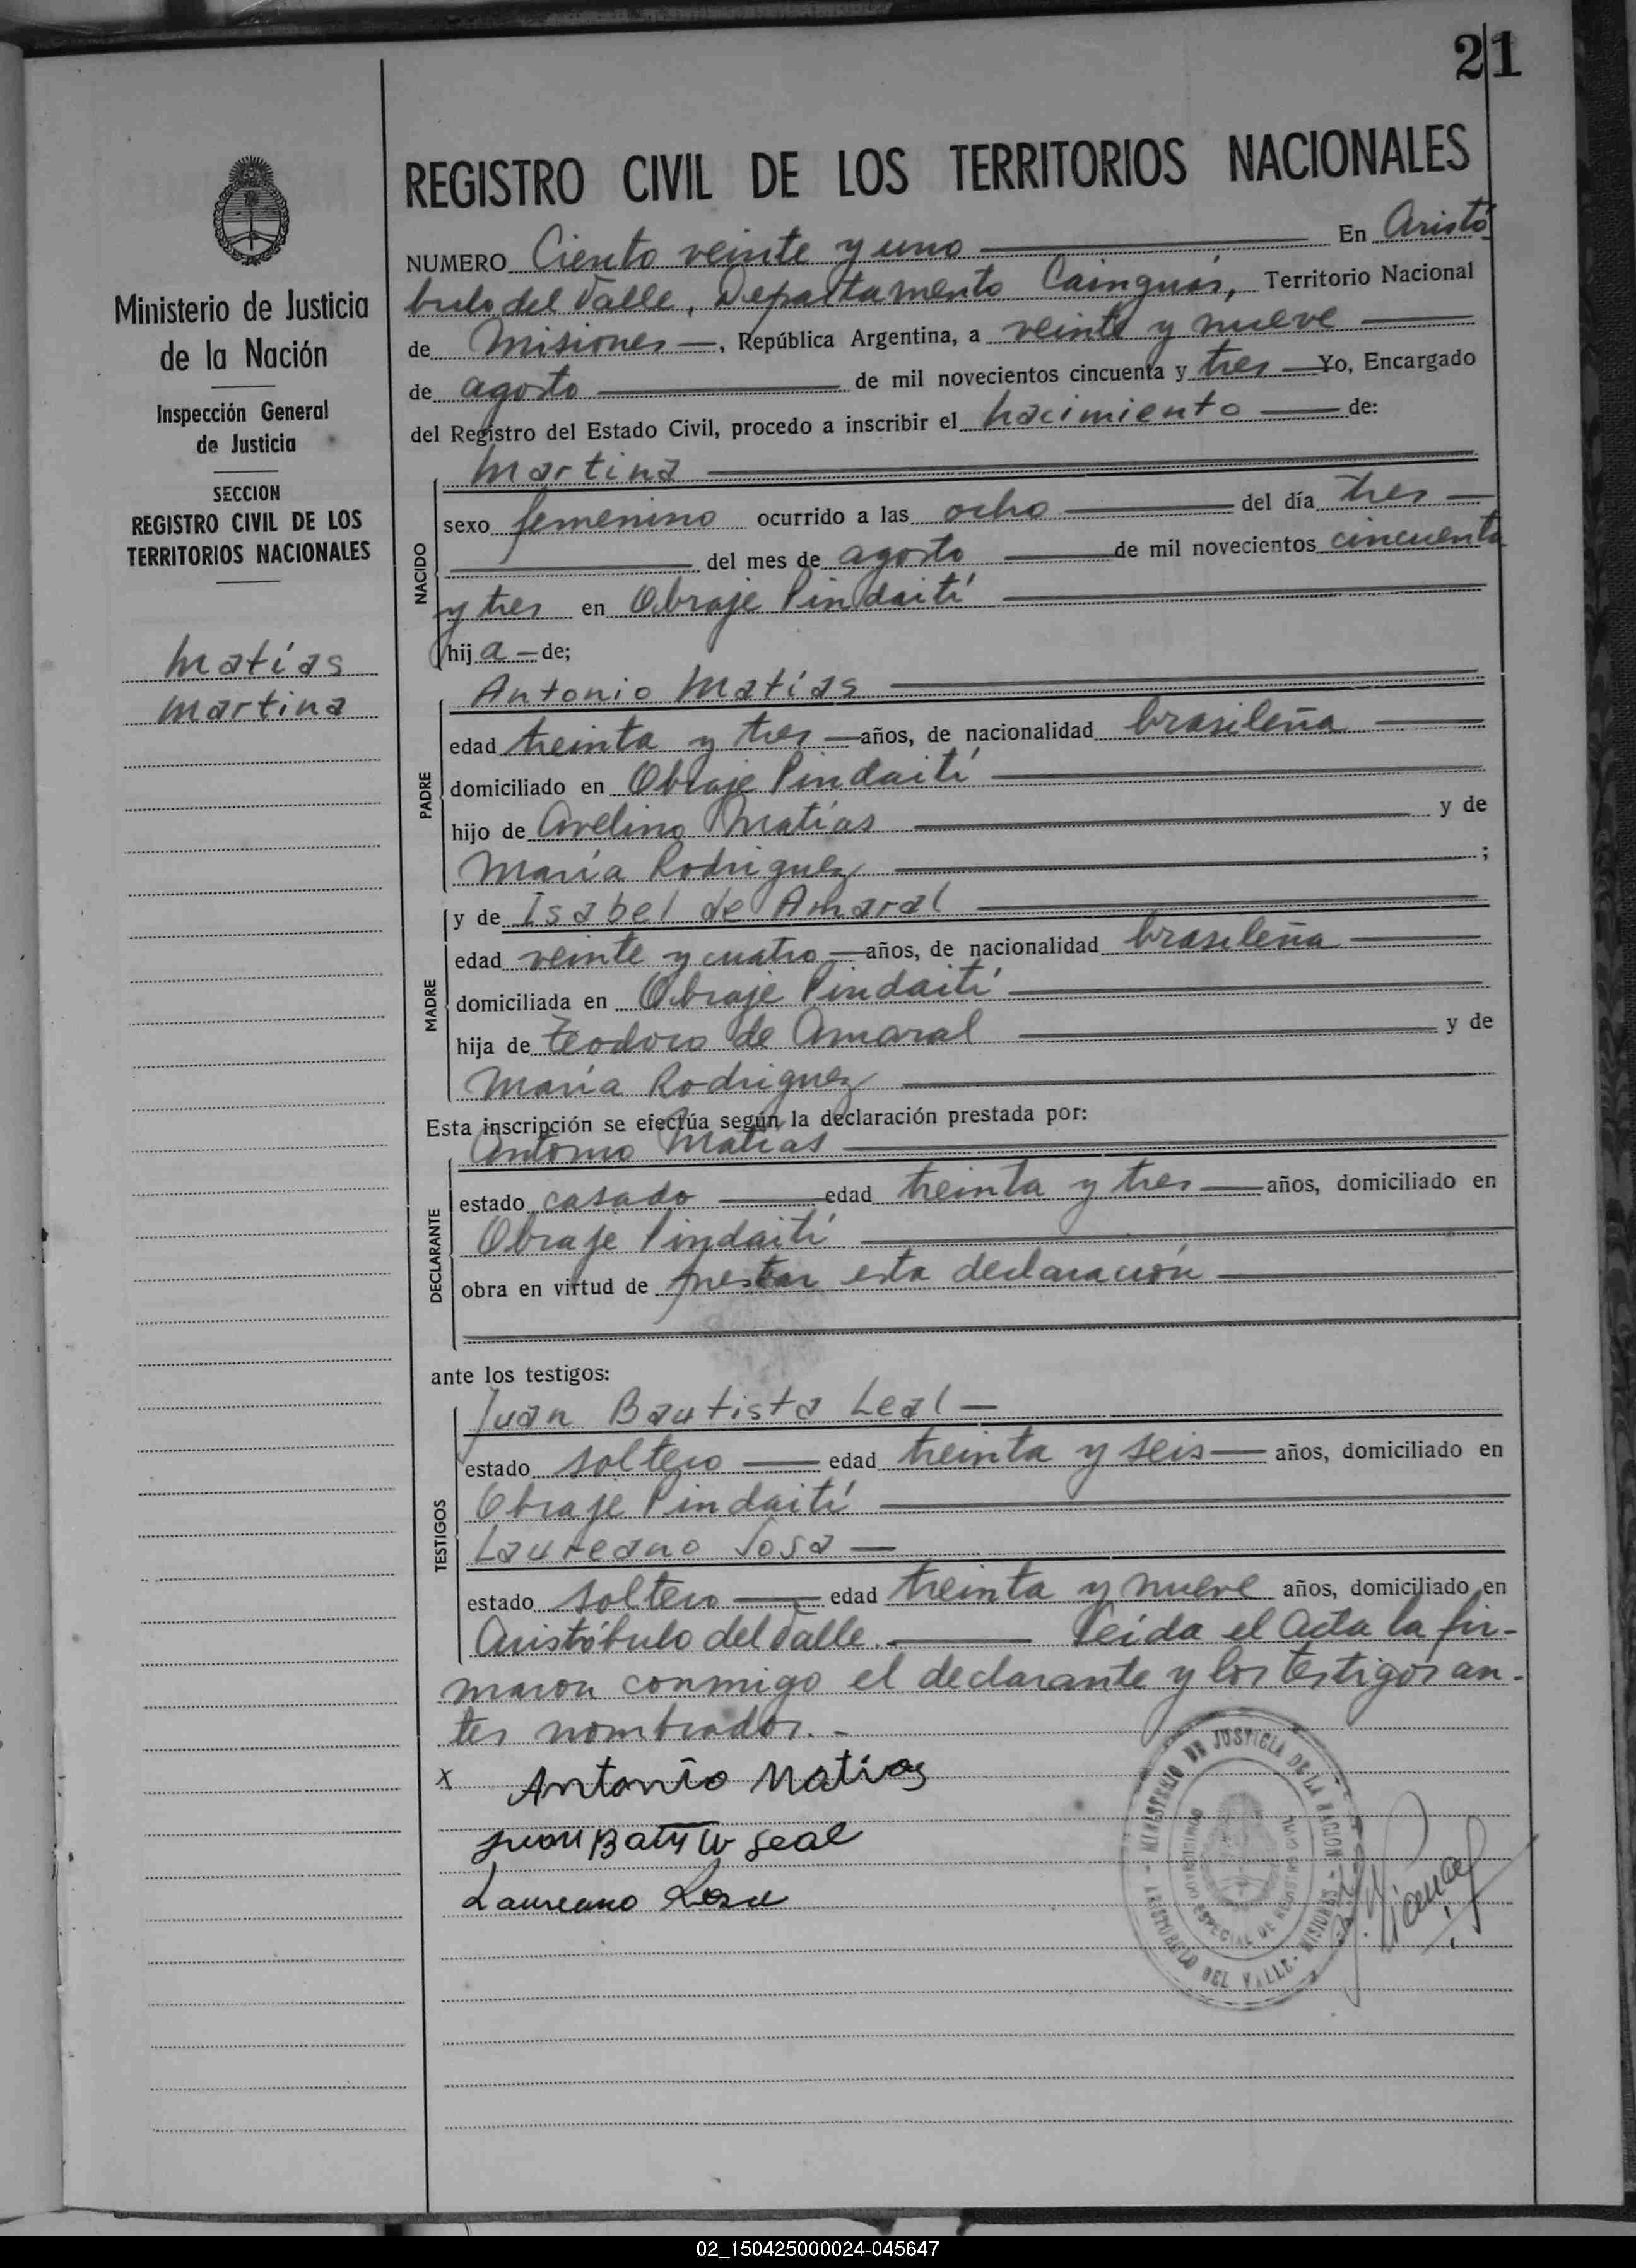 21
REGISTRO CIVIL DE LOS TERRITORIOS NACIONALES
Ministerio de Justicia
de la Nación
Inspección General
de Justicia
SECCION
REGISTRO CIVIL DE LOS
TERRITORIOS NACIONALES
Matías
Martina
NUMERO Ciento veinte y uno En Aristó
bulo del Valle, Departamento Cainguás, Territorio Nacional
de Misiones, República Argentina, a veinte y nueve
de agosto de mil novecientos cincuenta y tres Yo, Encargado
del Registro del Estado Civil, procedo a inscribir el nacimiento de:
NACIDO
Martina
sexo femenino ocurrido a las ocho del día tres
del mes de agosto de mil novecientos cincuenta
y tres en Obraje Pindaití
hija de;
PADRE
Antonio Matías
edad treinta y tres años, de nacionalidad brasileña
domiciliado en Obraje Pindaití
hijo de Avelino Matías y de
María Rodriguez ;
MADRE
y de Isabel de Amaral
edad veinte y cuatro años, de nacionalidad brasileña
domiciliada en Obraje Pindaití
hija de Teodoro de Amaral y de
María Rodriguez
Esta inscripción se efectúa según la declaración prestada por:
DECLARANTE
Antonio Matías
estado casado edad treinta y tres años, domiciliado en
Obraje Pindaití
obra en virtud de prestar esta declaración
ante los testigos:
TESTIGOS
Juan Bautista Leal —
estado soltero edad treinta y seis años, domiciliado en
Obraje Pindaití
Laureano Sosa —
estado soltero edad treinta y nueve años, domiciliado en
Aristóbulo del Valle. Leída el Acta la fir-
maron conmigo el declarante y los testigos an-
tes nombrados. -
x Antonio Matias
Juan Leal
Laureano Sosa
MINISTERIO DE JUSTICIA DE LA NACION
ARISTOBULO DEL VALLE - MISIONES
ESPECIAL DE
02_150425000024-045647